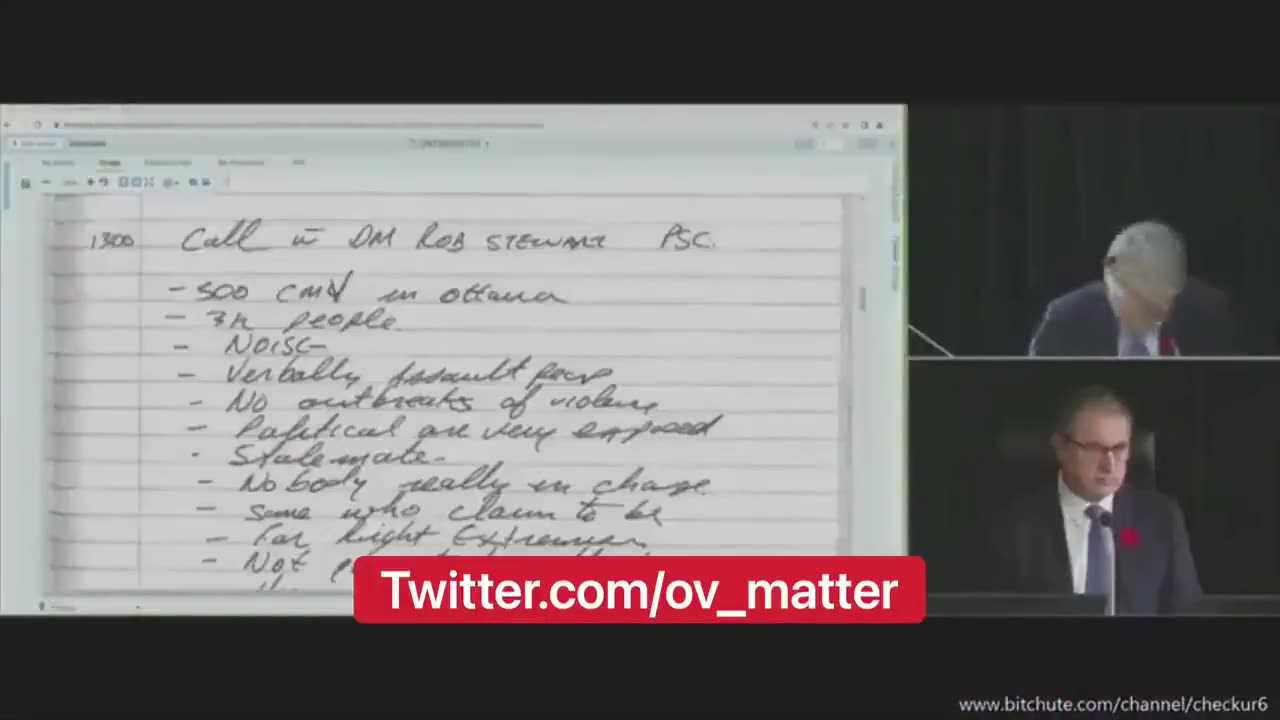 1300 Call w̄ DM ROB STEWART PSC.
- 500 CMV in Ottawa
- 3K people
- Noise
- Verbally Assault
- No outbreaks of violence
- Political are very exposed
- Stalemate.
- Nobody really in charge
- some who claim to be
- Far Right Extremism
- Not
Twitter.com/ov_matter
www.bitchute.com/channel/checkur6